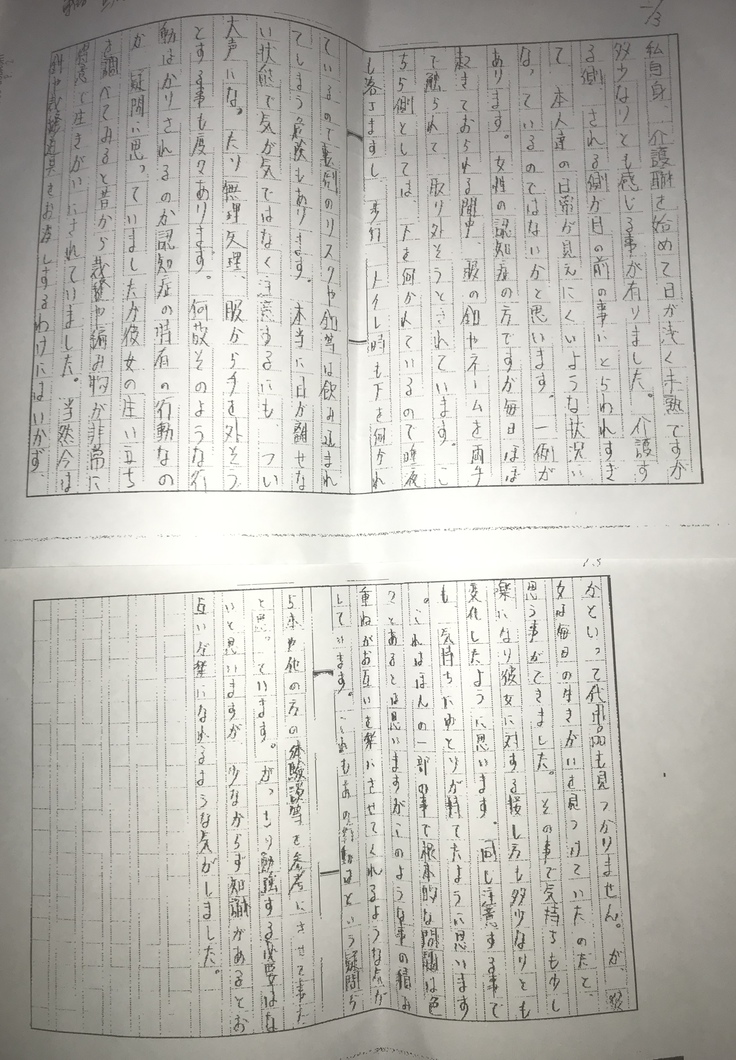 私自身、介護職を始めて日が浅く未熟ですが
多少なりとも感じる事が有りました。介護す
る側、される側が目の前の事にとらわれすぎ
て、本人達の日常が見えにくいような状況に
なっているのではないかと思います。一例が
あります。女性の認知症の方ですが毎日ほぼ
起きておられる間中、服の釦やネームを両手
で触られて、取り外そうとされています。こ
ちら側としては、下を向かれているので昼夜
も落ますし、歩行、トイレ時も下を向かれ
ているので転倒のリスクや釦等は飲み込まれ
てしまう危険もあります。本当に目が離せな
い状態で気が気ではなく注意するにも、つい
大声になったり、無理矢理、服から手を外そう
とする事も度々あります。何故そのような行
動ばかりされるのか認知症の特有の行動なの
か、疑問に思っていましたが彼女の生い立ち
を調べてみると昔から裁縫や編み物が非常に
得意で生きがいにされていました。当然今は
針や裁縫道具をお渡しするわけにはいかず、
かといって代用品も見つかりません。が、彼
女は毎日の生きがいを見つけていたのだと、
思う事ができました。その事で気持ちも少し
楽になり彼女に対する接し方も多少なりとも
変化したように思います。同じ注意する事で
も、気持ちにゆとりが持てたように思います
。これはほんの一部の事で根本的な問題は色
々とあるとは思いますがこのような事の積み
重ねがお互いを楽にさせてくれるような気が
しています。これもあの行動はという疑問か
ら本や他の方の体験談等を参考にさせて事だ
と思っています。がっさり勉強する必要はな
いと思いますが、少なからず知識があるとお
互いが楽になれるような気がしました。